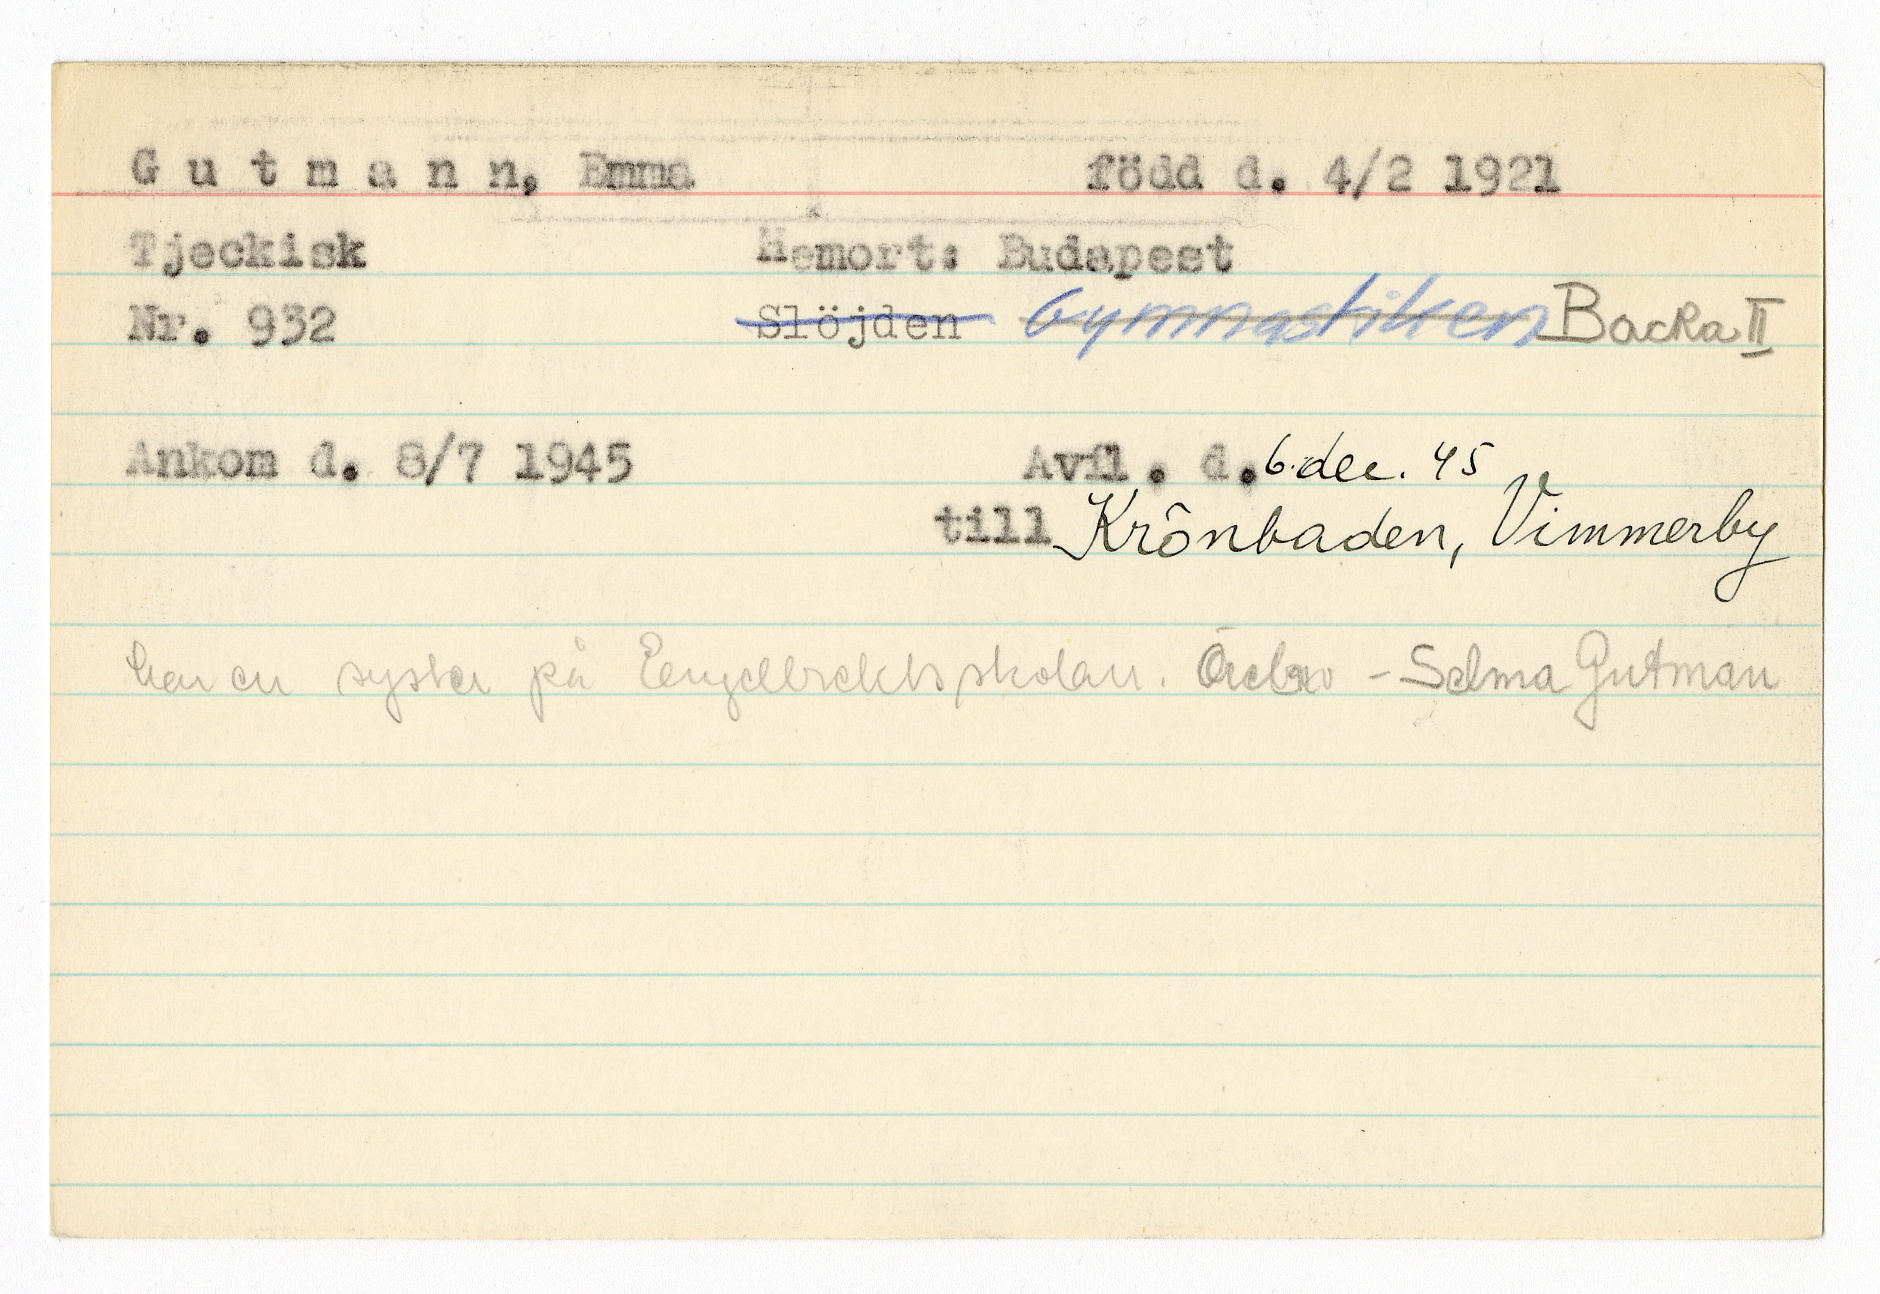 G u t m a n n, Emma född d. 4/2 1921
Tjeckisk Hemort: Budapest
Nr. 932 Slöjden Gymnastiken Backa II
Ankom d. 8/7 1945 Avfl. d. 6. dec. 45
till Krönbaden, Vimmerby
har en syster på Eengelbrektsskolan. Örebro - Selma Gutman